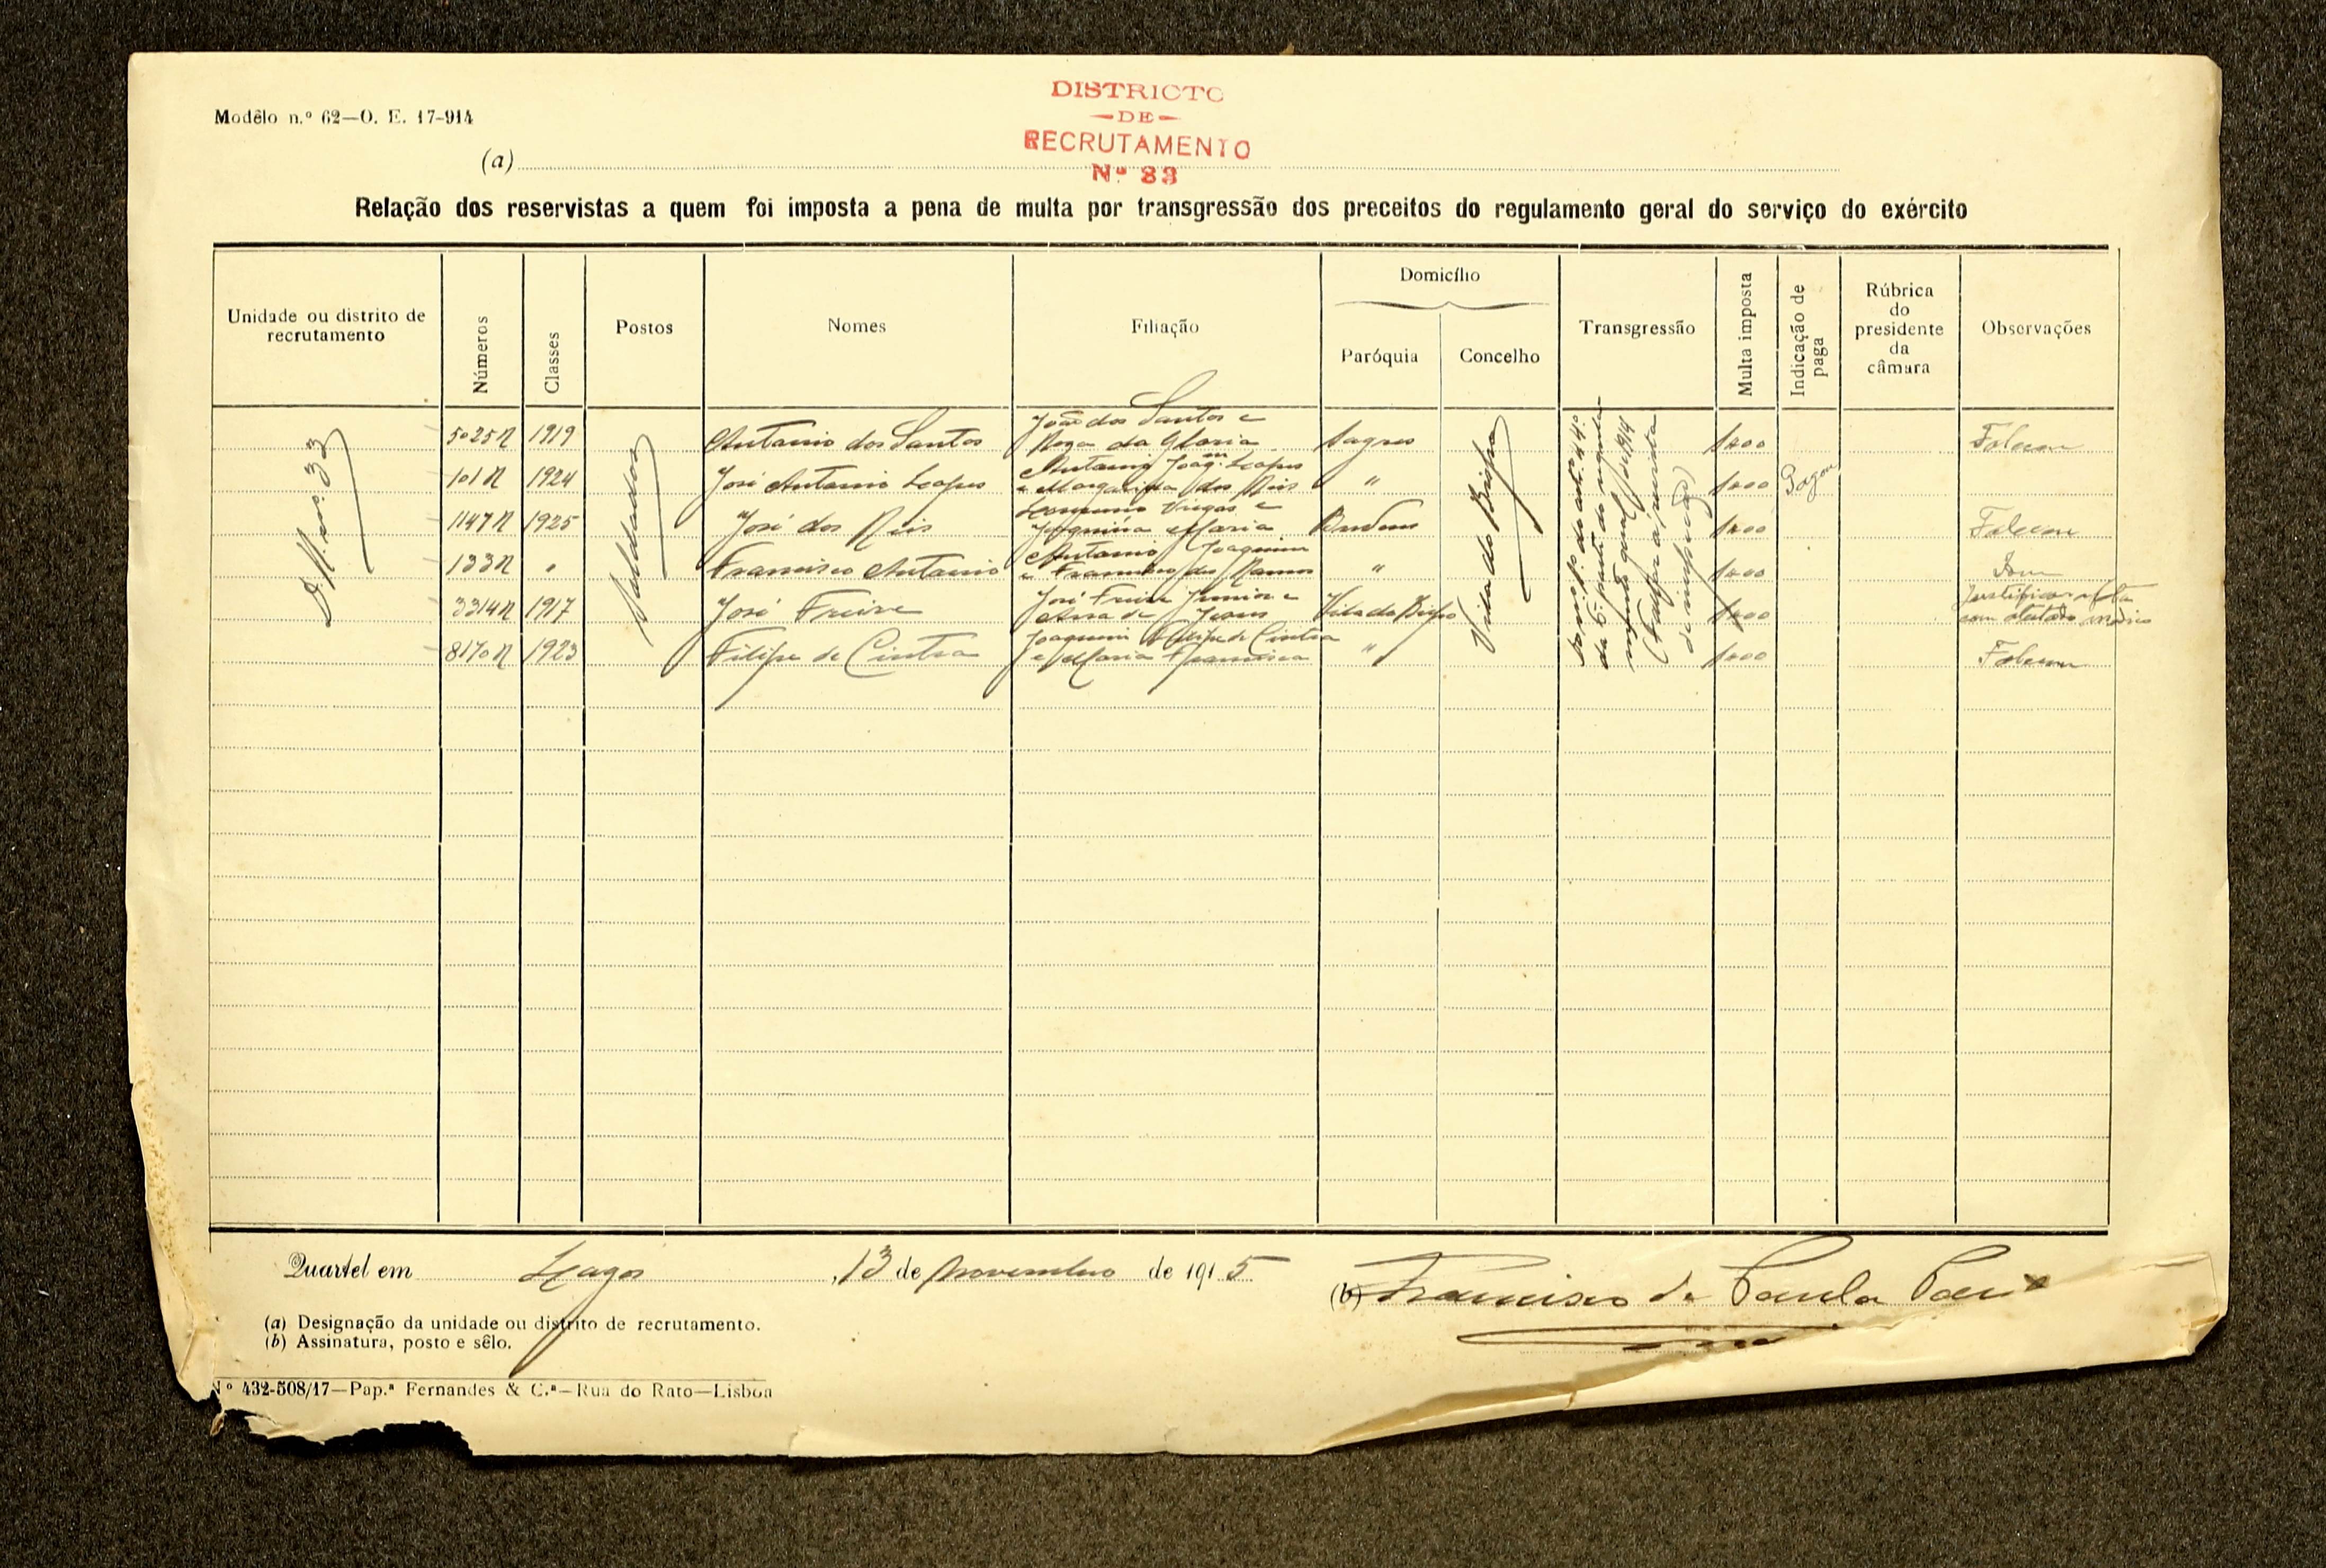 DISTRICTO
Modêlo n.º 62—O. E. 17-914
—DE—
RECRUTAMENTO
(a)
Nº 33
Relação dos reservistas a quem foi imposta a pena de multa por transgressão dos preceitos do regulamento geral do serviço do exército
Unidade ou distrito de recrutamento
Números
Classes
Postos
Nomes
Filiação
Domicílio
Paróquia
Concelho
Transgressão
Multa imposta
Indicação de paga
Rúbrica do presidente da câmara
Observações
D. R. nº 33
Soldados
Vila do Bispo
do artº 44º
da 5ª parte do
geral de 1914
(Faltar á revista
de inspecção)
5025 R 1919 Antonio dos Santos João dos Santos e Roza da Gloria Sagres 1$00 Faleceu
101 R 1924 José Antonio Lopes Antonio Joaqm Lopes e Margarida dos Reis " 1$00 Pagou
1147 R 1925 José dos Reis Viegas e Joaquina Maria Budens 1$00 Faleceu
133 R " Francisco Antonio Antonio Joaquim e Francisca de Ramos " 1$00
3314 R 1917 José Freire José Freire Junior e Anna de Jesus Vila do Bispo 1$00 Justificou a falta com atestado médico
8170 R 1923 Filipe de Cintra Joaquim Filipe de Cintra e Maria Francisca " 1$00 Faleceu
Quartel em Lagos, 13 de Novembro de 1915
(b) Francisco de Paula
(a) Designação da unidade ou distrito de recrutamento.
(b) Assinatura, posto e sêlo.
Nº 432-508/17—Pap.ª Fernandes & C.ª—Rua do Rato—Lisboa